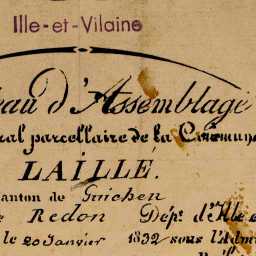 Ille-et-Vilaine
eau d'Assemblage
ral parcellaire de la Commune
LAILLÉ.
anton de Guichen
Redon Dép.t d'Ille e
le 20 Janvier 1832 sous l'Adm